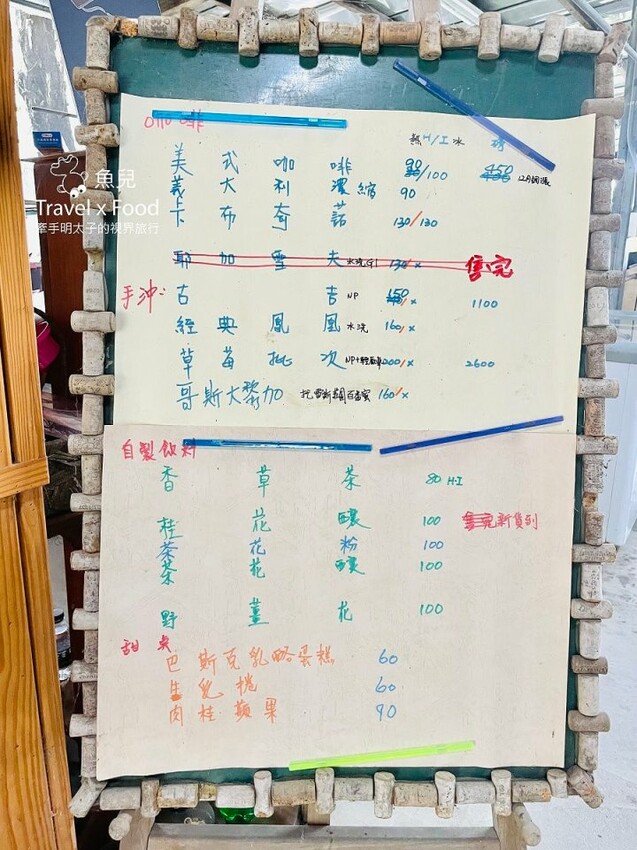 咖啡
熱H/I冰 磅
美式咖啡 90/100 450 12月調漲
義大利濃縮 90
卡布奇諾 130/130
魚兒
Travel x Food
牽手明太子的視界旅行
耶加雪夫 水洗G1 130/x 售完
手沖:
古吉 NP 150/x 1100
經典鳳凰 水洗 160/x
草莓批次 200/x 2600
哥斯大黎加 160/x
自製飲料
香草茶 80 H.I
桂花釀 100 售完新貨到
茶花粉 100
茶花釀 100
野薑花 100
甜點
巴斯克乳酪蛋糕 60
生乳捲 60
肉桂蘋果 90